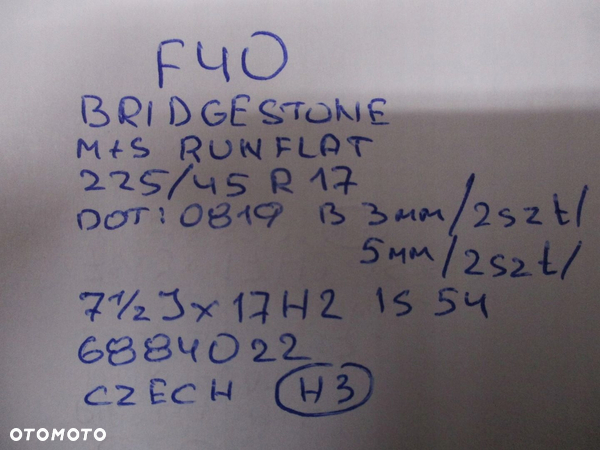 F40
BRIDGESTONE
M+S RUNFLAT
225/45 R 17
DOT: 0819 B 3mm/2szt/
5mm/2szt/
7½Jx17H2 IS 54
6884022
CZECH H3
OTOMOTO